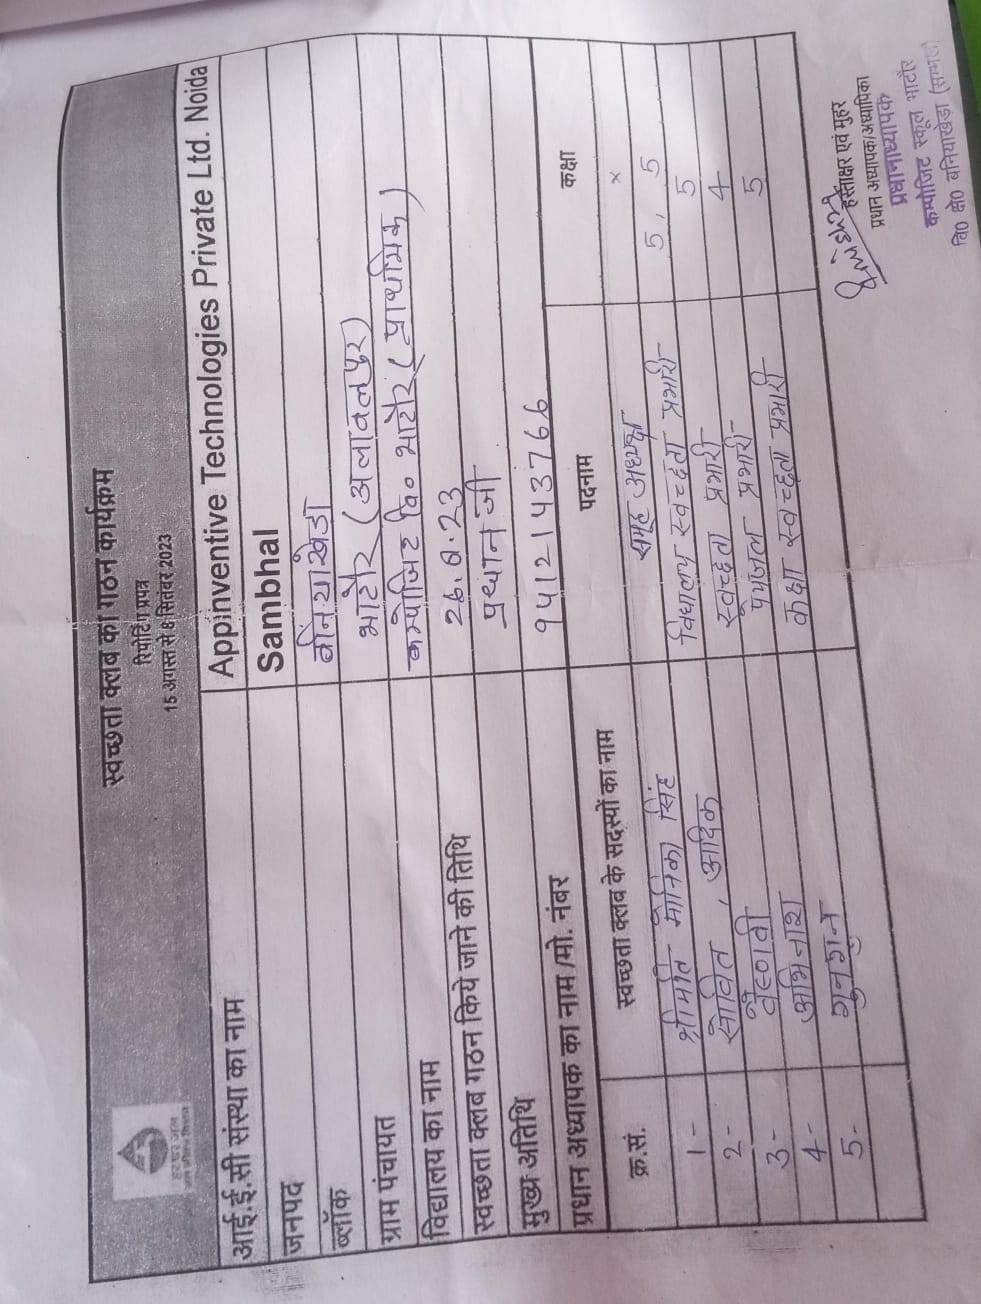 स्वच्छता क्लब का गठन कार्यक्रम
रिपोर्टिंग प्रपत्र
15 अगस्त से 8 सितंबर 2023
हर घर जल
आई.ई.सी संस्था का नाम Appinventive Technologies Private Ltd. Noida
जनपद Sambhal
ब्लॉक बनियाखेडा
ग्राम पंचायत भाटौर (अलावलपुर)
विद्यालय का नाम कम्पोजिट वि० भाटौर (प्राथमिक)
स्वच्छता क्लब गठन किये जाने की तिथि 26.8.23
मुख्य अतिथि प्रधान जी
प्रधान अध्यापक का नाम /मो. नंबर 9412143766
क्र.सं. स्वच्छता क्लब के सदस्यों का नाम पदनाम कक्षा
1- श्रीमति मोनिका सिंह समूह अध्यक्ष ×
2- , विद्यालय स्वच्छता प्रभारी 5, 5
3- वैष्णवी स्वच्छता प्रभारी 5
4- अभिनाश पेयजल प्रभारी 4
5- गुनगुन कक्षा स्वच्छता प्रभारी 5
हस्ताक्षर एवं मुहर
प्रधान अध्यापक/अध्यापिका
प्रधानाध्यापक
कम्पोजिट स्कूल भाटौर
वि० क्षे० बनियाखेड़ा (सम्भल)